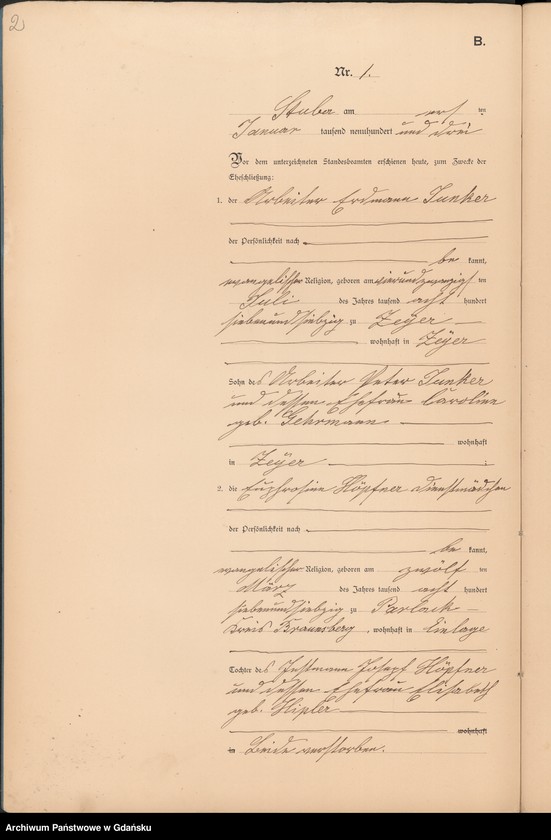 2
B.
Nr. 1.
Stuba am erst ten
Januar tausend neunhundert und drei
Vor dem unterzeichneten Standesbeamten erschienen heute, zum Zwecke der
Eheschließung:
1. der Arbeiter Erdmann Junker
der Persönlichkeit nach
be kannt,
evangelischer Religion, geboren am vierundzwanzigsten
Juli des Jahres tausend acht hundert
siebenundsiebzig zu Zeyer
, wohnhaft in Zeyer
Sohn des Arbeiter Peter Junker
und dessen Ehefrau Caroline
geb. Gehrmann
wohnhaft
in Zeyer ;
2. die Euphrosine Höpfner Dienstmädchen
der Persönlichkeit nach
be kannt,
evangelischer Religion, geboren am zwölf ten
März des Jahres tausend acht hundert
siebenundsiebzig zu Parlack
Kreis Braunsberg, wohnhaft in Einlage
Tochter des Instmann Josef Höpfner
und dessen Ehefrau Elisabeth
geb. Hipler
wohnhaft
in Beide verstorben.
Archiwum Państwowe w Gdańsku